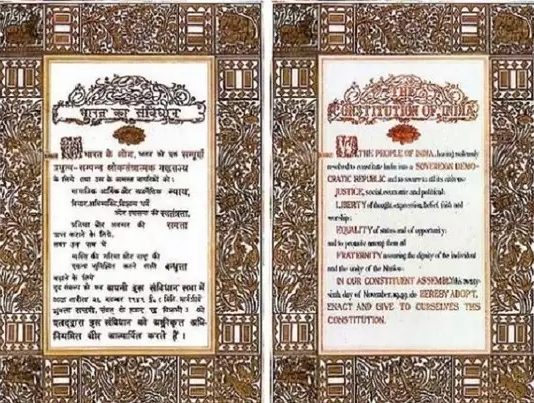 भारत का संविधान
हम, भारत के लोग, भारत को एक सम्पूर्ण
प्रभुत्व-सम्पन्न लोकतंत्रात्मक गणराज्य
के लिये तथा उस के समस्त नागरिकों को :
सामाजिक आर्थिक और राजनैतिक न्याय,
विचार,अभिव्यक्ति,विश्वास,धर्म
और उपासना की स्वतंत्रता,
प्रतिष्ठा और अवसर की समता
प्राप्त कराने के लिये,
तथा उन सब में
व्यक्ति की गरिमा और राष्ट्र की
एकता सुनिश्चित करने वाली बन्धुता
बढ़ाने के लिये
दृढ़ संकल्प हो कर अपनी इस संविधान सभा में
आज तारीख २६ नवम्बर १९४९ ई०
को
एतद्द्वारा इस संविधान को अधि-
नियमित और आत्मार्पित करते हैं।
THE
CONSTITUTION OF INDIA
WE, THE PEOPLE OF INDIA, having solemnly
resolved to constitute India into a SOVEREIGN DEMO-
CRATIC REPUBLIC and to secure to all its citizens:
JUSTICE, social, economic and political;
LIBERTY of thought, expression, belief, faith and
worship;
EQUALITY of status and of opportunity;
and to promote among them all
FRATERNITY assuring the dignity of the individual
and the unity of the Nation;
IN OUR CONSTITUENT ASSEMBLY this twenty-
sixth day of November, 1949, do HEREBY ADOPT,
ENACT AND GIVE TO OURSELVES THIS
CONSTITUTION.